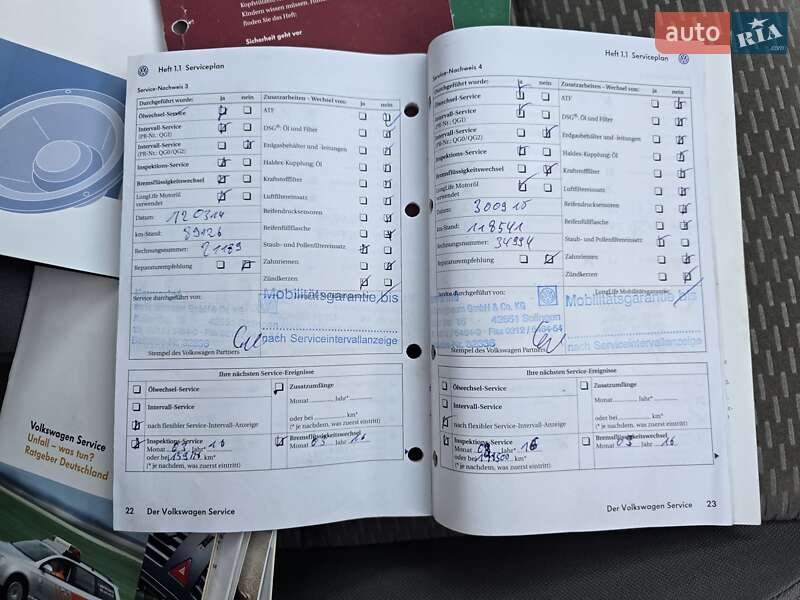 Kindern wissen müssen.
finden Sie das Heft:
Sicherheit geht vor
auto RIA .com
Heft 1.1 Serviceplan
Service-Nachweis 3
Durchgeführt wurde: ja nein
Ölwechsel-Service
Intervall-Service
(PR-Nr.: QG1)
Intervall-Service
(PR-Nr.: QG0/QG2)
Inspektions-Service
Bremsflüssigkeitswechsel
LongLife Motoröl
verwendet
Datum: 120314
km-Stand: 89126
Rechnungsnummer: 21189
Reparaturempfehlung
Zusatzarbeiten - Wechsel von: ja nein
ATF
DSG®: Öl und Filter
Erdgasbehälter und -leitungen
Haldex-Kupplung: Öl
Kraftstofffilter
Luftfiltereinsatz
Reifendrucksensoren
Reifenfüllflasche
Staub- und Pollenfiltereinsatz
Zahnriemen
Zündkerzen
Service durchgeführt von:
Mobilitätsgarantie bis
nach Serviceintervallanzeige
Stempel des Volkswagen Partners
Ihre nächsten Service-Ereignisse
Ölwechsel-Service
Intervall-Service
nach flexibler Service-Intervall-Anzeige
Inspektions-Service
Monat Jahr*
oder bei km*
(* je nachdem, was zuerst eintritt)
Zusatzumfänge
Monat Jahr*
oder bei km*
(* je nachdem, was zuerst eintritt)
Bremsflüssigkeitswechsel
Monat 03 Jahr 16
22 Der Volkswagen Service
Heft 1.1 Serviceplan
Service-Nachweis 4
Durchgeführt wurde: ja nein
Ölwechsel-Service
Intervall-Service
(PR-Nr.: QG1)
Intervall-Service
(PR-Nr.: QG0/QG2)
Inspektions-Service
Bremsflüssigkeitswechsel
LongLife Motoröl
verwendet
Datum: 300915
km-Stand: 118541
Rechnungsnummer: 34994
Reparaturempfehlung
Zusatzarbeiten - Wechsel von: ja nein
ATF
DSG®: Öl und Filter
Erdgasbehälter und -leitungen
Haldex-Kupplung: Öl
Kraftstofffilter
Luftfiltereinsatz
Reifendrucksensoren
Reifenfüllflasche
Staub- und Pollenfiltereinsatz
Zahnriemen
Zündkerzen
Service durchgeführt von:
GmbH & Co. KG
42651 Solingen
Mobilitätsgarantie bis
nach Serviceintervallanzeige
Stempel des Volkswagen Partners
Ihre nächsten Service-Ereignisse
Ölwechsel-Service
Intervall-Service
nach flexibler Service-Intervall-Anzeige
Inspektions-Service
Monat Jahr* 16
oder bei km*
(* je nachdem, was zuerst eintritt)
Zusatzumfänge
Monat Jahr*
oder bei km*
(* je nachdem, was zuerst eintritt)
Bremsflüssigkeitswechsel
Monat 03 Jahr 16
Der Volkswagen Service 23
Volkswagen Service
Unfall – was tun?
Ratgeber Deutschland